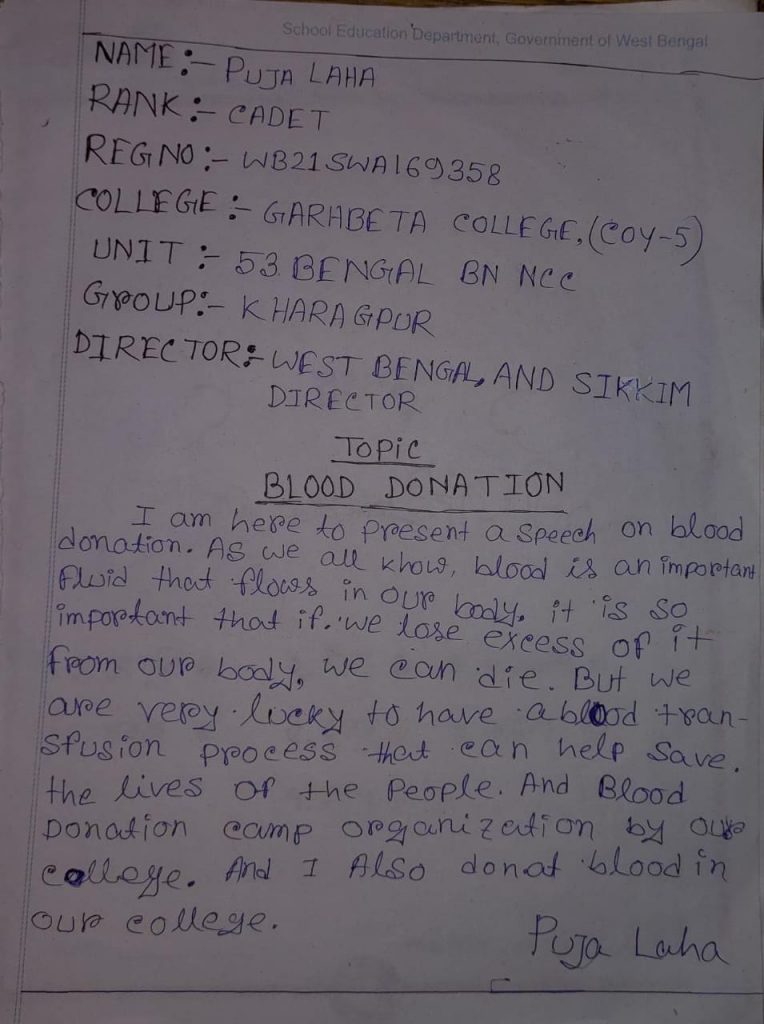 School Education Department, Government of West Bengal
NAME:- PUJA LAHA
RANK:- CADET
REGNO:- WB21SWA169358
COLLEGE:- GARHBETA COLLEGE, (COY-5)
UNIT:- 53 BENGAL BN NCC
GROUP:- KHARAGPUR
DIRECTOR:- WEST BENGAL, AND SIKKIM
DIRECTOR
TOPIC
BLOOD DONATION
I am here to present a speech on blood
donation. As we all know, blood is an important
fluid that flows in our body. it is so
important that if. we lose excess of it
from our body, we can die. But we
are very lucky to have a blood tran-
sfusion process that can help save.
the lives of the people. And Blood
Donation camp organization by our
college. And I Also donat blood in
our college.
Puja Laha